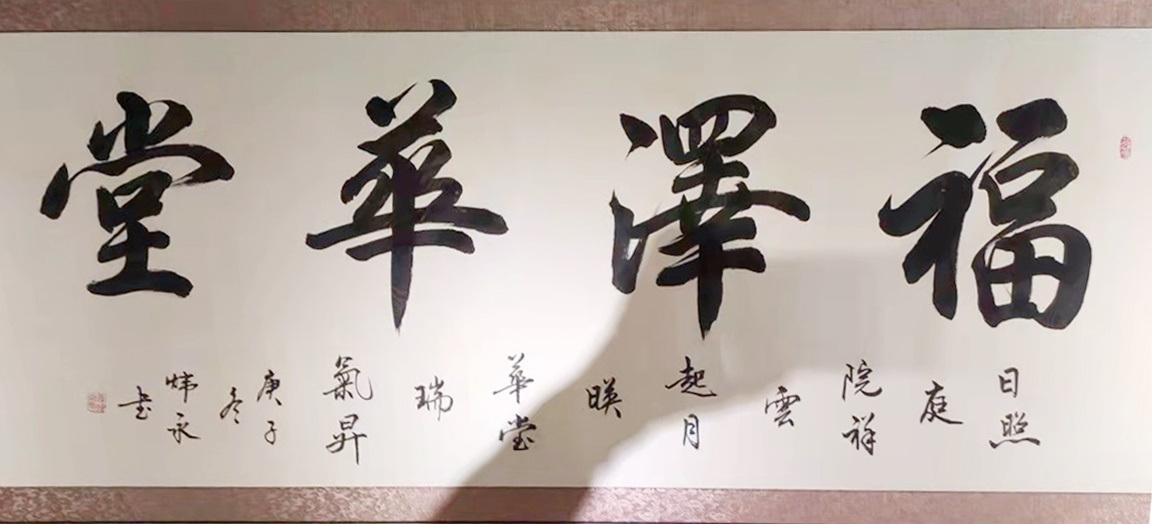 福澤華堂
日照
庭
院祥
雲
起月
暎
華堂
瑞
氣昇
庚子
冬
炜永
书